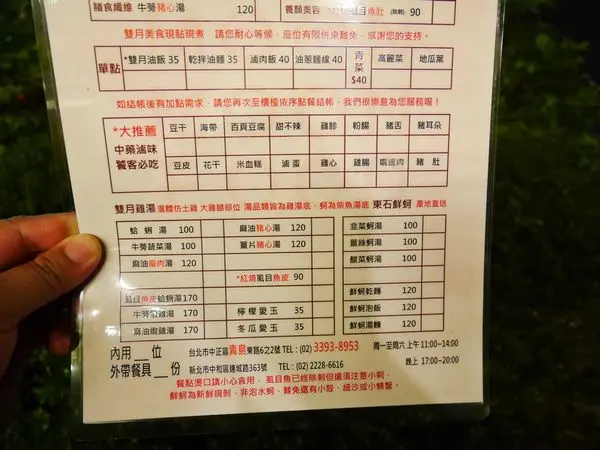 膳食纖維 牛蒡豬心湯 120 養顏美容 虱目魚肚 (無刺) 90
雙月美食現點現煮 請您耐心等候，座位有限併桌難免、感謝您的支持。
單點 *雙月油飯 35 乾拌油麵 35 滷肉飯 40 油蔥麵線 40 青菜 $40 高麗菜 地瓜葉
如結帳後有加點需求，請您再次至櫃檯依序點餐結帳，我們很樂意為您服務喔！
*大推薦 中藥滷味 饕客必吃
豆干 海帶 百頁豆腐 甜不辣 雞胗 粉腸 豬舌 豬耳朵
豆皮 花干 米血糕 滷蛋 雞心 雞腸 嘴邊肉 豬肚
雙月雞湯 溫體仿土雞 大雞腿部位 湯品類皆為雞湯底，蚵為柴魚湯底 東石鮮蚵 產地直送
蛤蜊湯 100 麻油豬心湯 120 韭菜蚵湯 100
牛蒡蔬菜湯 100 薑片豬心湯 120 薑絲蚵湯 100
麻油瘦肉湯 120 酸菜蚵湯 100
*紅燒虱目魚皮 90
虱目魚皮蛤蜊湯 170 鮮蚵乾麵 120
牛蒡燉雞湯 170 檸檬愛玉 35 鮮蚵泡飯 120
麻油燉雞湯 170 冬瓜愛玉 35 鮮蚵湯麵 120
內用 ___ 位 台北市中正區青島東路6之2號 TEL：(02) 3393-8953 周一至周六 上午11:00~14:00
外帶餐具 ___ 份 新北市中和區連城路363號 TEL：(02) 2228-6616 晚上 17:00~20:00
餐點燙口請小心食用， 虱目魚已經除刺但還須注意小刺，
鮮蚵為新鮮現剝，非泡水蚵、難免還有小殼、細沙或小螃蟹。